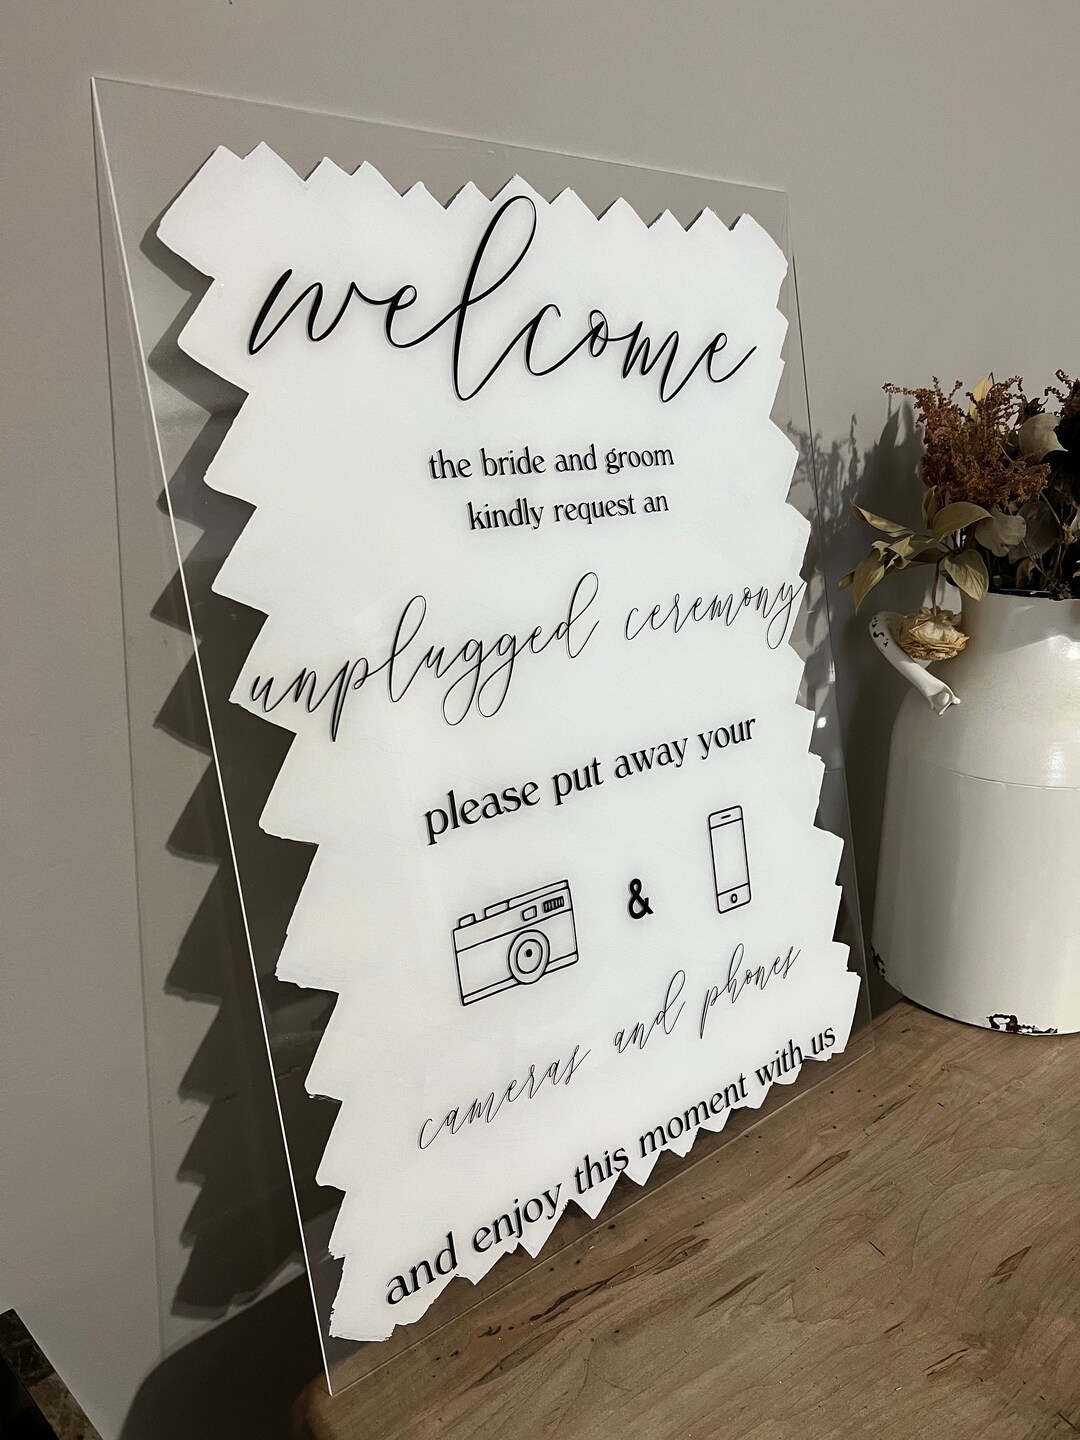 welcome
the bride and groom
kindly request an
unplugged ceremony
please put away your
&
cameras and phones
and enjoy this moment with us